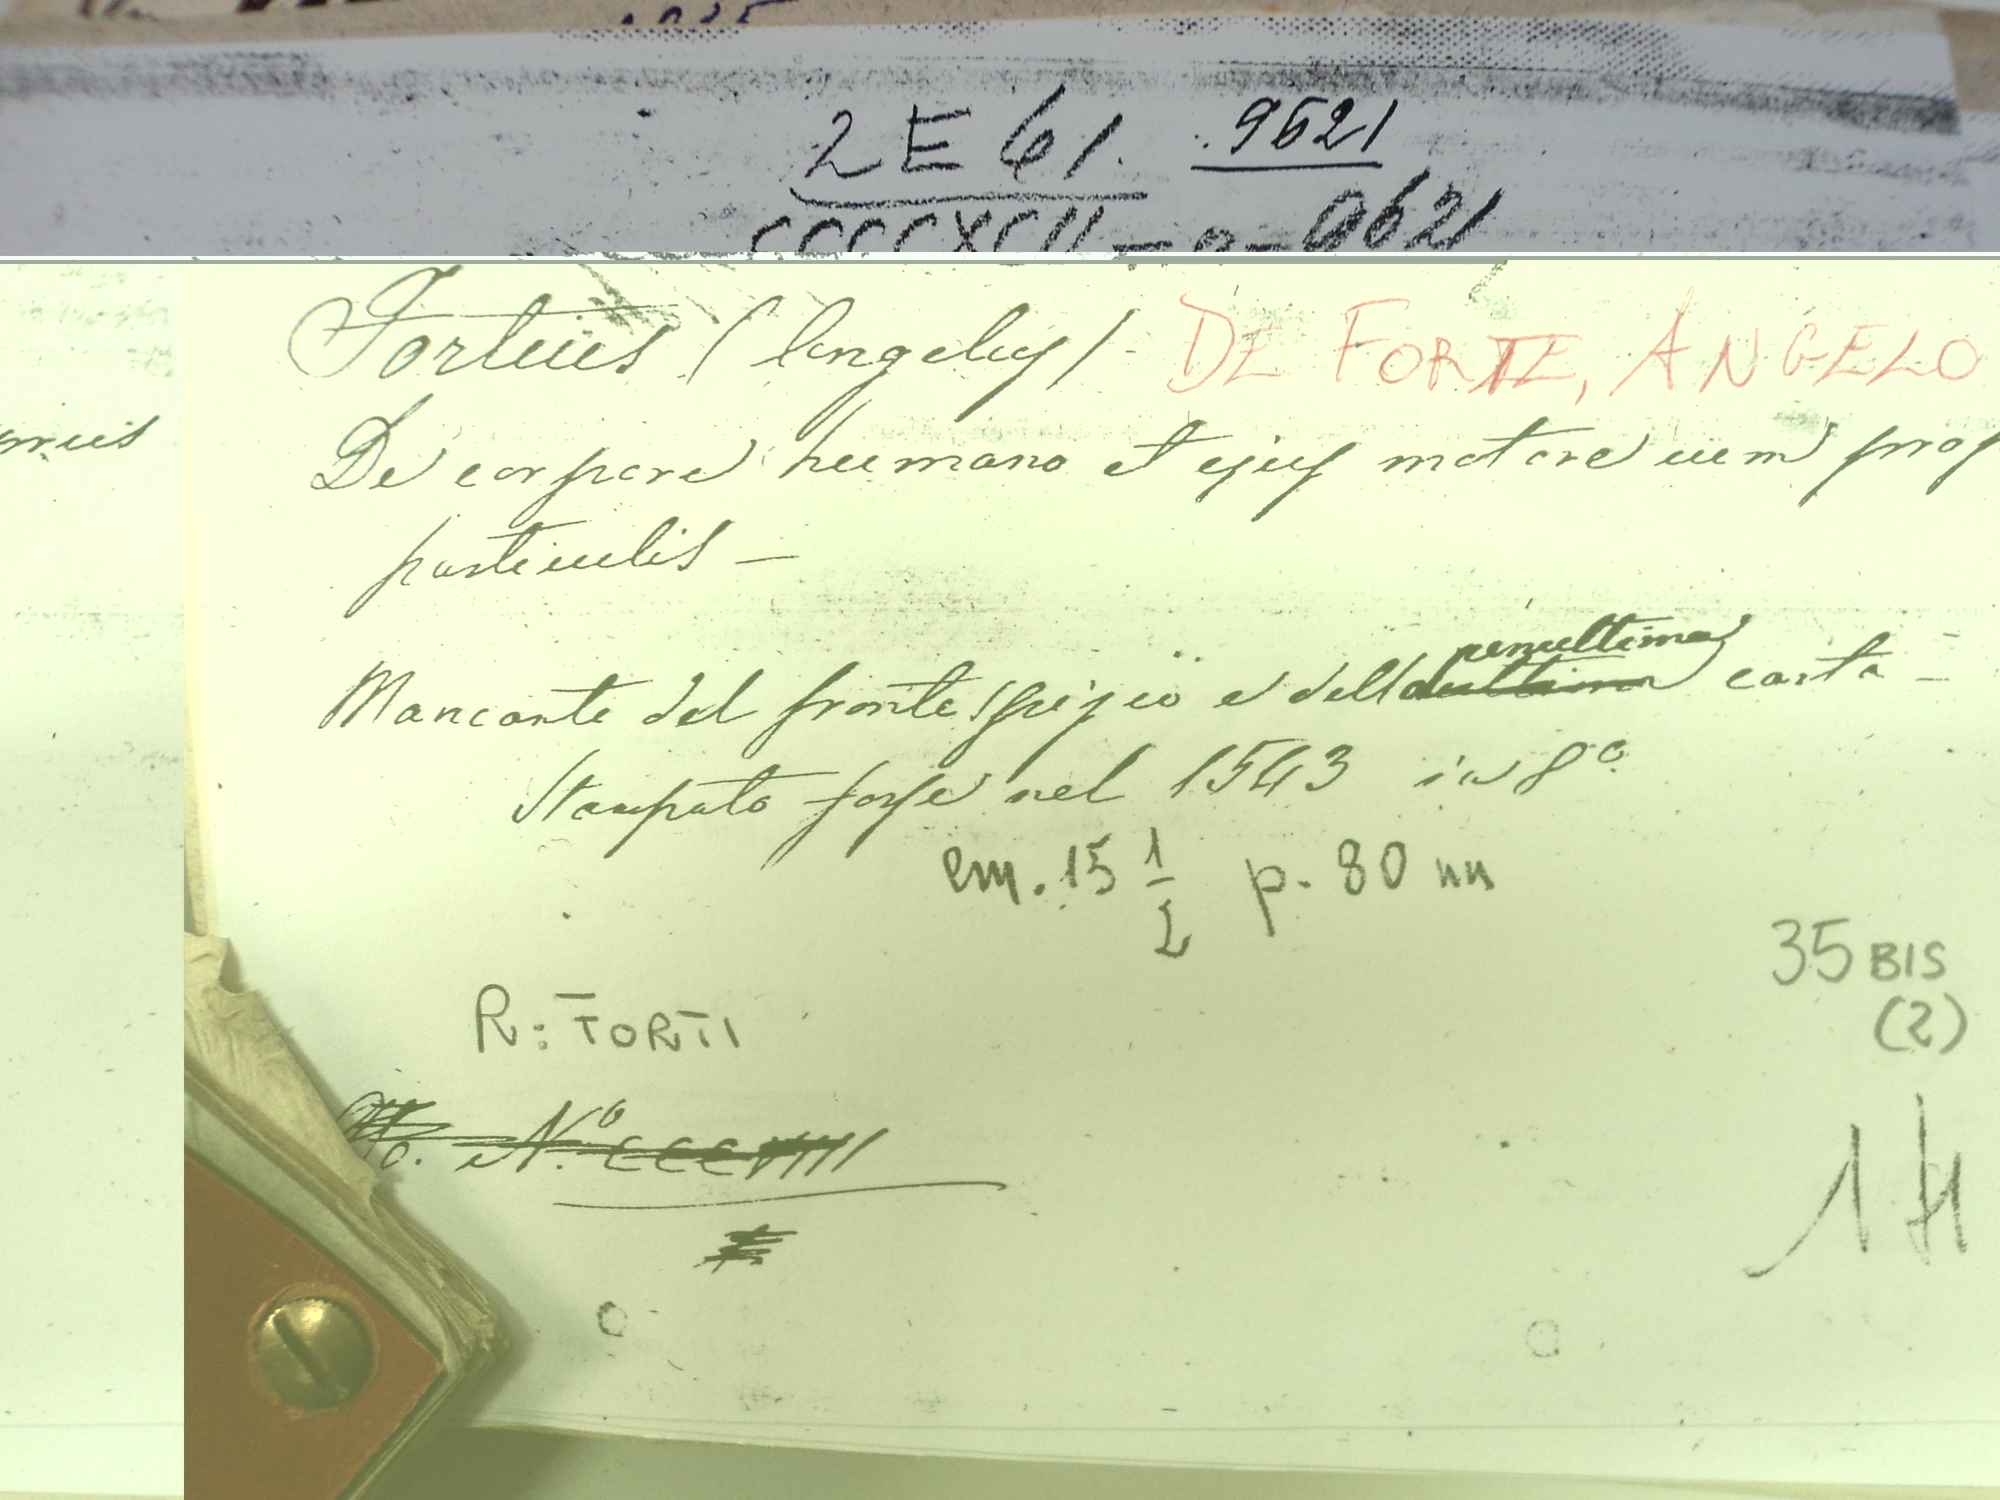 2 E 61. .9621
CCCCXCII - 2 - 9621
Fortius (Angelus) - DE FORTE, ANGELO
De corpore humano et ejus motore cum prop
particulis -
Mancante del frontespizio e della penultima carta -
Stampato forse nel 1543 in 8º
cm. 15 1/2 p. 80 nn
35 BIS
(2)
R: FORTI
Nº. CCCVIIII
1H